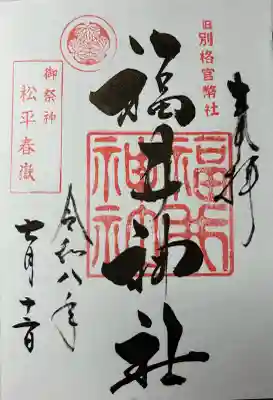 奉拝
旧別格官幣社
福井神社
福井神社
御祭神
松平春嶽
令和八年
七月十二日